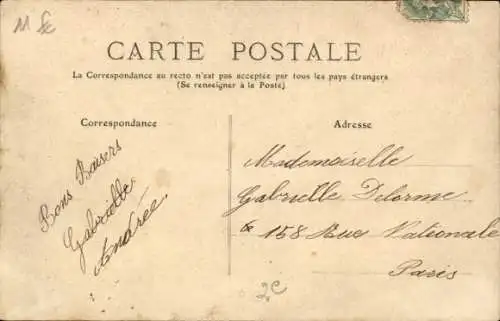 M
CARTE POSTALE
La Correspondance au recto n'est pas acceptée par tous les pays étrangers
(Se renseigner à la Poste)
Correspondance
Adresse
Bons Baisers
Gabrielle
Andrée
Mademoiselle
Gabrielle Delorme
158 Rue Nationale
Paris
2€